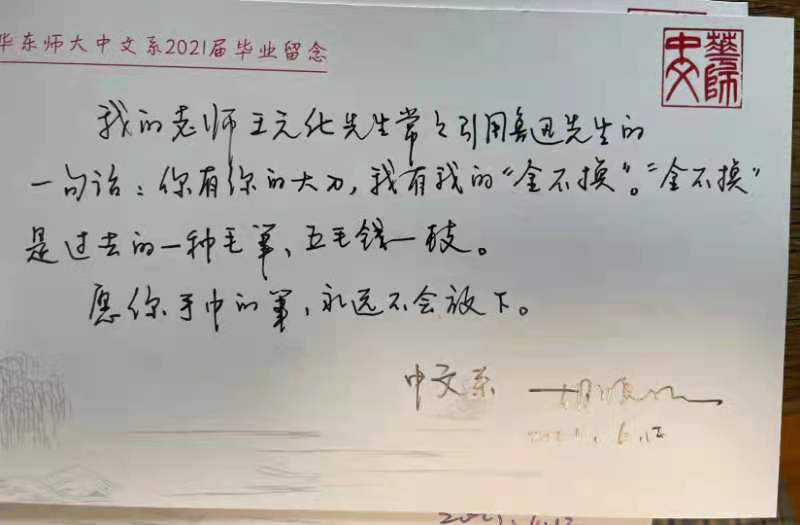 华东师大中文系2021届毕业留念
華師中文
我的老师王元化先生常々引用鲁迅先生的
一句话：你有你的大刀，我有我的“金不换”。“金不换”
是过去的一种毛笔，五毛钱一枝。
愿你手中的笔，永远不会放下。
中文系
2021.6.12